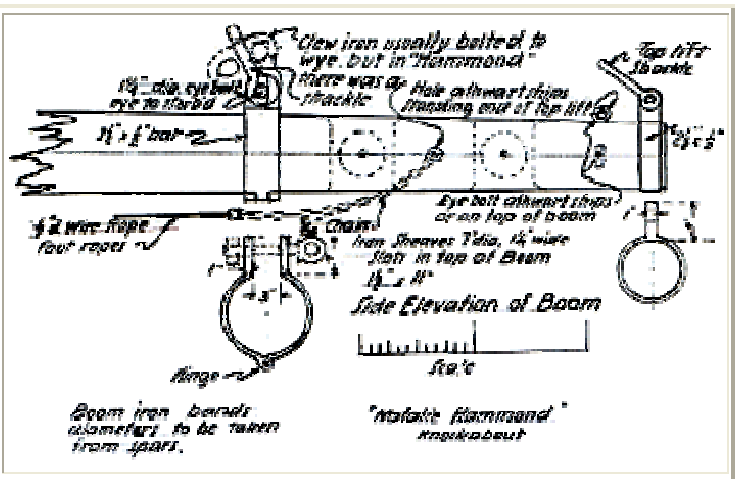 Clew iron usually bolted to
wye, but in "Hammond"
there was a
shackle
Top lift
Shackle
1¼" dia. eye bolt
eye to starb'd
Hole athwart ships
standing end of top lift
bar
Eye bolt athwart ships
or on top of boom
wire Rope
foot ropes
Chain
Iron Sheaves 7" dia, 1¼" wide
Slots in top of Boom
Side Elevation of Boom
3"
Scale
Hinge
Boom iron bands
diameters to be taken
from spars.
"Natalie Hammond"
Knockabout